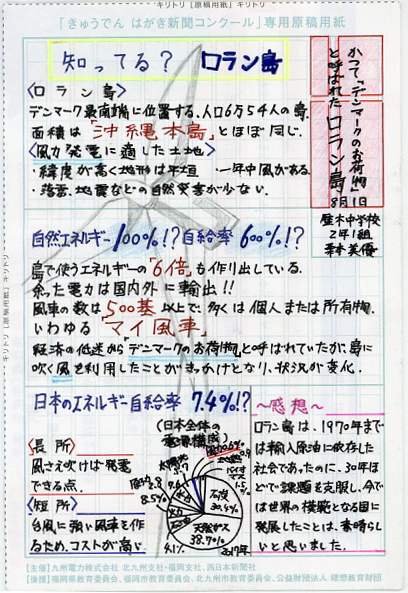 キリトリ [原稿用紙] キリトリ
「きゅうでん はがき新聞コンクール」専用原稿用紙
知ってる? ロラン島
かつて「デンマークのお荷物」
と呼ばれたロラン島
8月1日
2年1組
〈ロラン島〉
デンマーク最南端に位置する、人口6万54人の島。
面積は「沖縄本島」とほぼ同じ。
〈風力発電に適した土地〉
・緯度が高く地形は平坦 ・一年中風がある
・落雷、地震などの自然災害が少ない。
自然エネルギー100%!? 自給率600%!?
島で使うエネルギーの「6倍」も作り出している。
余った電力は国内外に輸出!!
風車の数は500基以上で、多くは個人または所有物。
いわゆる「マイ風車」
経済の低迷から「デンマークのお荷物」と呼ばれていたが、島に
吹く風を利用したことがきっかけとなり、状況が変化。
日本のエネルギー自給率 7.4%!?
〈長所〉
風さえ吹けば発電
できる点。
〈短所〉
台風に強い風車を作
るため、コストが高い
(日本全体の
電源構成)
風力0.6%
太陽光
バイオマス
1.5%
水力
7.6
8.5%
石炭
30.4%
天然ガス
38.7%
4.1%
2017年
〜感想〜
ロラン島は、1970年まで
は輸入原油に依存した
社会であったのに、30年ほ
どで課題を克服し、今で
は世界の模範となる国に
発展したことは、素晴らし
いと思いました。
[主催]九州電力株式会社 北九州支社・福岡支社、西日本新聞社
[後援]福岡県教育委員会、福岡市教育委員会、北九州市教育委員会、公益財団法人 理想教育財団
キリトリ [原稿用紙] キリトリ